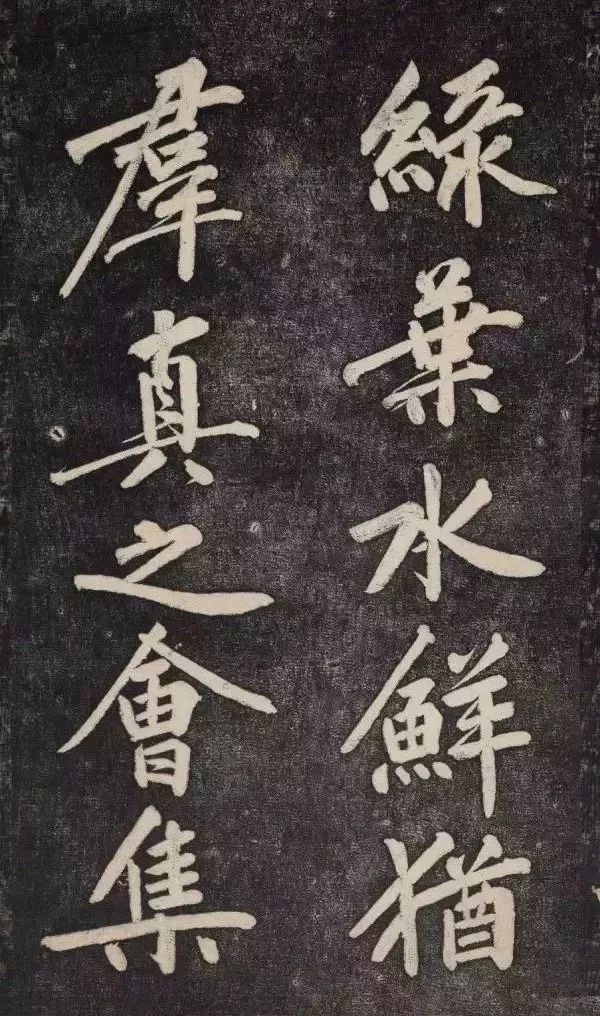 綠葉水鮮猶
羣真之會集